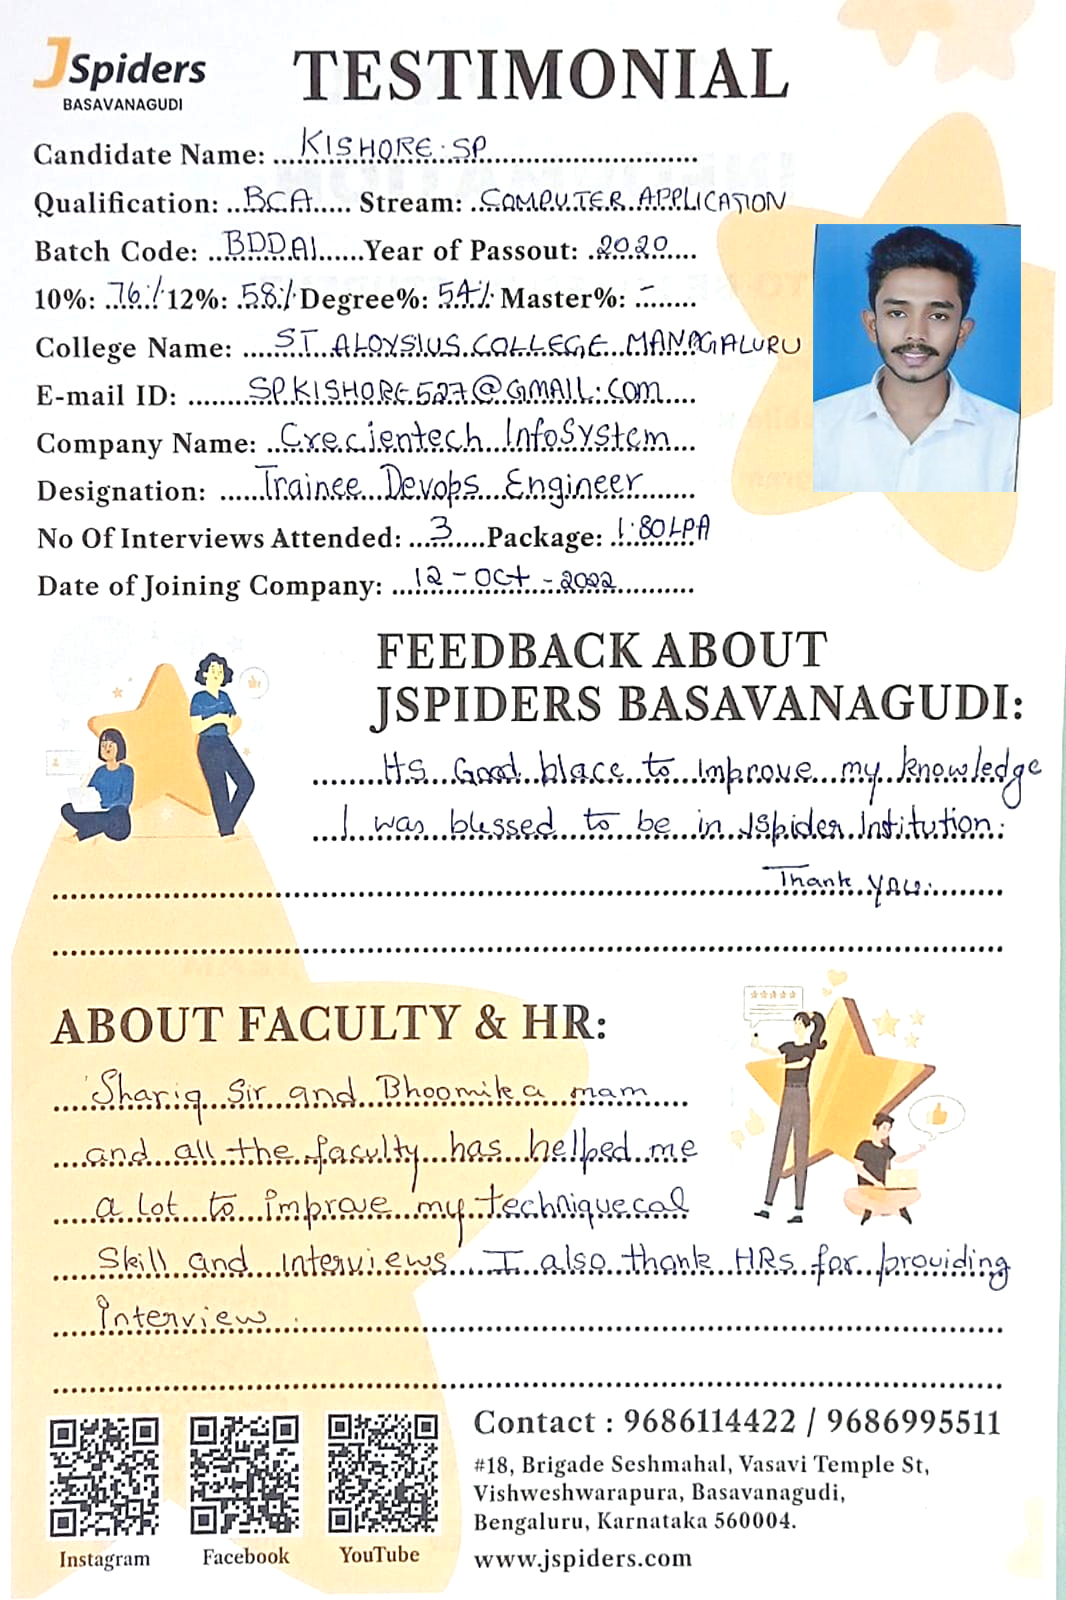 JSpiders
BASAVANAGUDI
TESTIMONIAL
Candidate Name: KISHORE. SP
Qualification: BCA Stream: COMPUTER APPLICATION
Batch Code: BDDA1 Year of Passout: 2020
10%: 76% 12%: 58% Degree%: 54% Master%: -
College Name: ST ALOYSIUS COLLEGE MANAGALURU
E-mail ID: SPKISHORE527@GMAIL.com
Company Name: Crecientech InfoSystem
Designation: Trainee Devops Engineer
No Of Interviews Attended: 3 Package: 1.80LPA
Date of Joining Company: 12-Oct-2022
FEEDBACK ABOUT
JSPIDERS BASAVANAGUDI:
Its Good place to Improve my knowledge
I was blessed to be in JSpider Institution.
Thank you.
ABOUT FACULTY & HR:
Shariq Sir and Bhoomika mam
and all the faculty has helped me
a lot to improve my techniquecal
Skill and Interviews I also thank HRs for providing
Interview.
Contact : 9686114422 / 9686995511
#18, Brigade Seshmahal, Vasavi Temple St,
Vishweshwarapura, Basavanagudi,
Bengaluru, Karnataka 560004.
www.jspiders.com
Instagram Facebook YouTube